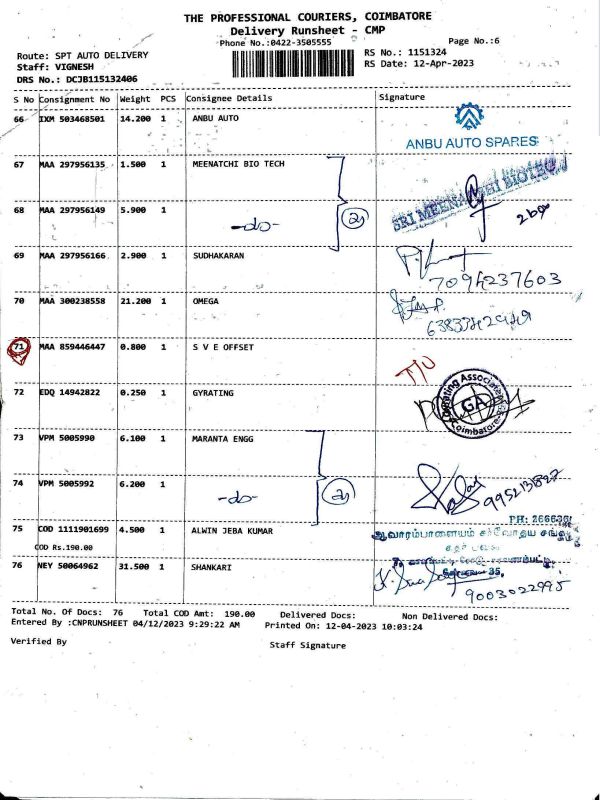 THE PROFESSIONAL COURIERS, COIMBATORE
Delivery Runsheet - CMP
Phone No.:0422-3505555 Page No.:6
Route: SPT AUTO DELIVERY RS No.: 1151324
Staff: VIGNESH RS Date: 12-Apr-2023
DRS No.: DCJB115132406
S No Consignment No Weight PCS Consignee Details Signature
66 IXM 503468501 14.200 1 ANBU AUTO
ANBU AUTO SPARES
67 MAA 297956135 1.500 1 MEENATCHI BIO TECH
SRI MEENATCHI BIOTECH
68 MAA 297956149 5.900 1 -do- 2
69 MAA 297956166 2.900 1 SUDHAKARAN
7094237603
70 MAA 300238558 21.200 1 OMEGA
71 MAA 859446447 0.800 1 S V E OFFSET
72 EDQ 14942822 0.250 1 GYRATING
Gyrating Associates
GA
Coimbatore
73 VPM 5005990 6.100 1 MARANTA ENGG
74 VPM 5005992 6.200 1 -do- 2
PH: 266636
75 COD 1111901699 4.500 1 ALWIN JEBA KUMAR
ஆவாரம்பாளையம் சர்வோதய சங்கம்
COD Rs.190.00
76 NEY 50064962 31.500 1 SHANKARI
9003022995
Total No. Of Docs: 76 Total COD Amt: 190.00 Delivered Docs: Non Delivered Docs:
Entered By :CNPRUNSHEET 04/12/2023 9:29:22 AM Printed On: 12-04-2023 10:03:24
Verified By Staff Signature